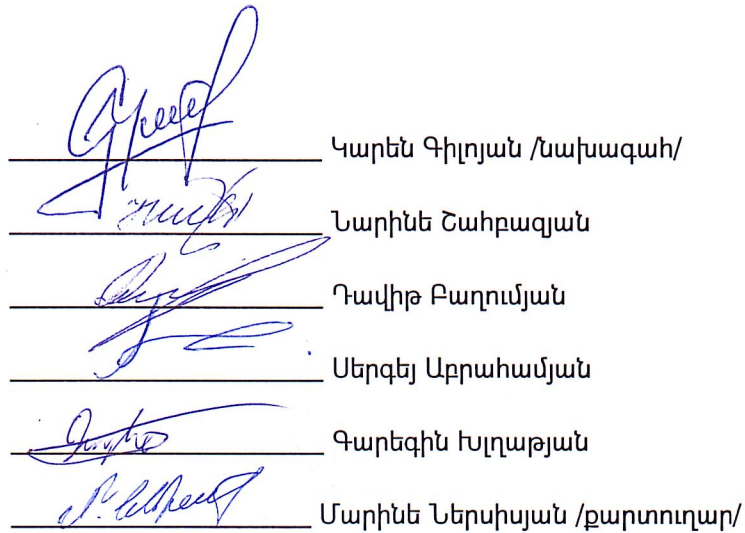 Կարեն Գիլոյան /նախագահ/
Նարինե Շահբազյան
Դավիթ Բաղումյան
Սերգեյ Աբրահամյան
Գարեգին Խլղաթյան
Մարինե Ներսիսյան /քարտուղար/